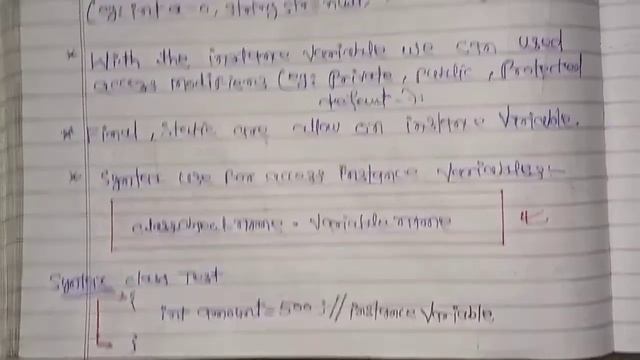 (eg: int a = 0, String str = null.
* With the instance variable we can used
access modifiers (eg: private, public, protected
default.):
* Final, static are allow on instance variable.
* Syntax use for access instance variables:-
classobject name . variable name
Syntax class Test
{
int amount = 500 ; // instance variable
}